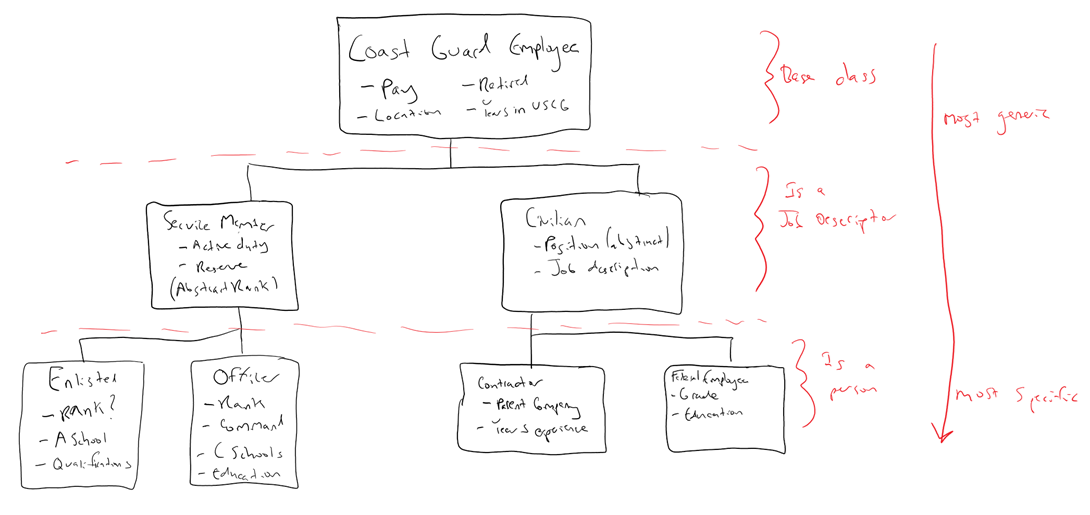 Coast Guard Employee
- Pay
- Retired
- Location
- Years in USCG
Base class
Most generic
Is a
Job Descriptor
Service Member
- Active duty
- Reserve
(Abstract Rank)
Civilian
- Position (abstract)
- Job description
Enlisted
- Rank?
- A School
- Qualifications
Officer
- Rank
- Command
- C Schools
- Education
Contractor
- Parent Company
- Years experience
Federal Employee
- Grade
- Education
Is a
person
Most Specific